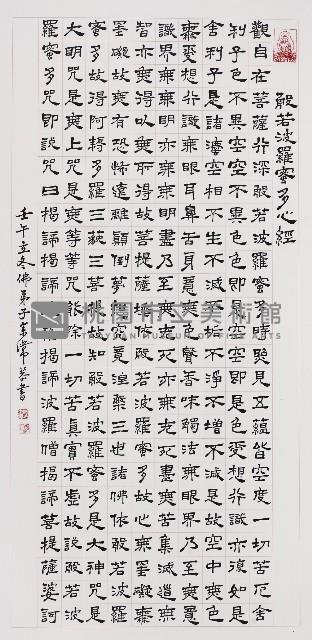 般若波羅蜜多心經
觀自在菩薩行深般若波羅蜜多時照見五蘊皆空度一切苦厄舍
利子色不異空空不異色色即是空空即是色受想行識亦復如是
舍利子是諸法空相不生不滅不垢不淨不增不減是故空中無色
無受想行識無眼耳鼻舌身意無色聲香味觸法無眼界乃至無意
識界無無明亦無無明盡乃至無老死亦無老死盡無苦集滅道無
智亦無得以無所得故菩提薩埵依般若波羅蜜多故心無罣礙無
罣礙故無有恐怖遠離顛倒夢想究竟涅槃三世諸佛依般若波羅
蜜多故得阿耨多羅三藐三菩提故知般若波羅蜜多是大神咒是
大明咒是無上咒是無等等咒能除一切苦真實不虛故說般若波
羅蜜多咒即說咒曰揭諦揭諦波羅揭諦波羅僧揭諦菩提薩婆訶
壬午立冬佛弟子書
桃園市立美術館
TAOYUAN MUSEUM OF FINE ARTS